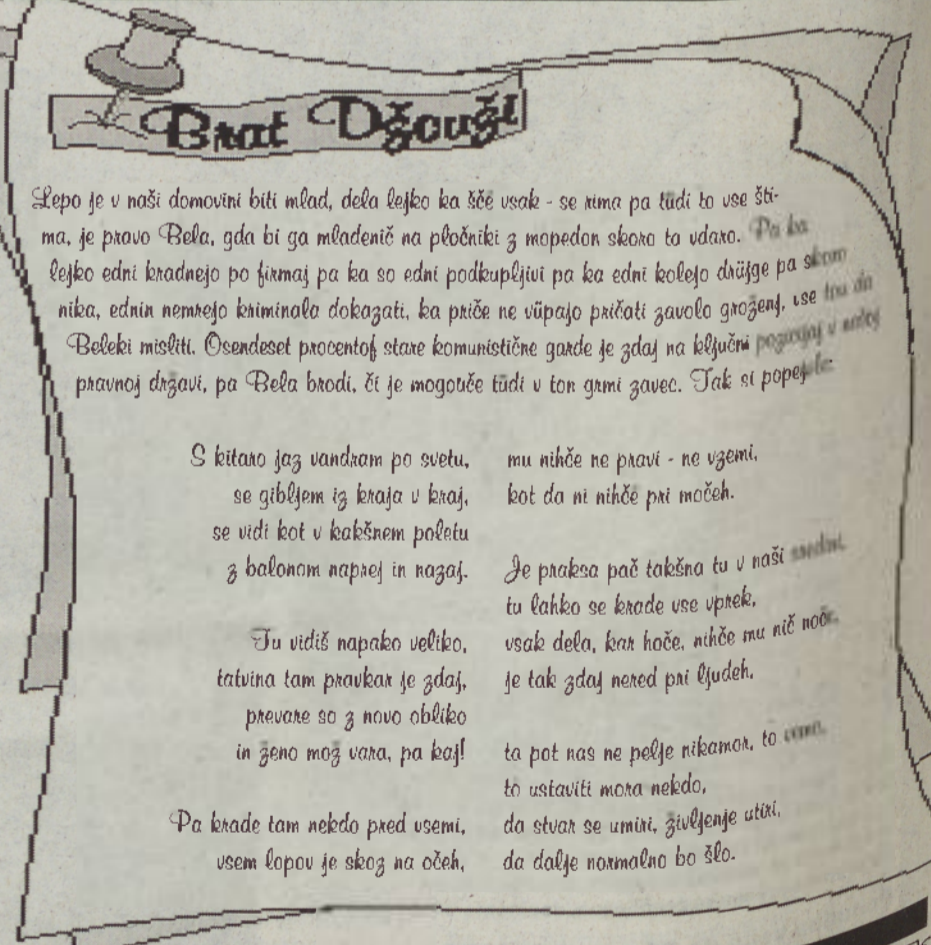 Brat Džouži
Lepo je v naši domovini biti mlad, dela lejko ka šče vsak - se rima pa tüdi to vse šti-
ma, je pravo Bela, gda bi ga mladenič na pločniki z mopedon skoro ta vdaro. Pa ka
lejko edni kradnejo po firmaj pa ka so edni podkupljivi pa ka edni kolejo drüjge pa skoro
nika, ednin nemrejo kriminala dokazati, ka priče ne vüpajo pričati zavolo groženj, vse tou da
Beleki misliti. Osendeset procentof stare komunistične garde je zdaj na ključni pozicijaj v našoj
pravnoj državi, pa Bela brodi, či je mogouče tüdi v ton grmi zavec. Tak si popejvle:
S kitaro jaz vandram po svetu,
se gibljem iz kraja v kraj,
se vidi kot v kakšnem poletu
z balonom naprej in nazaj.
Tu vidiš napako veliko,
tatvina tam pravkar je zdaj,
prevare so z novo obliko
in ženo mož vara, pa kaj!
Pa krade tam nekdo pred vsemi,
vsem lopov je skoz na očeh,
mu nihče ne pravi - ne vzemi,
kot da ni nihče pri močeh.
Je praksa pač takšna tu v naši
tu lahko se krade vse vprek,
vsak dela, kar hoče, nihče mu nič noče,
je tak zdaj nered pri ljudeh,
ta pot nas ne pelje nikamor, to vemo,
to ustaviti mora nekdo,
da stvar se umiri, življenje utiri,
da dalje normalno bo šlo.